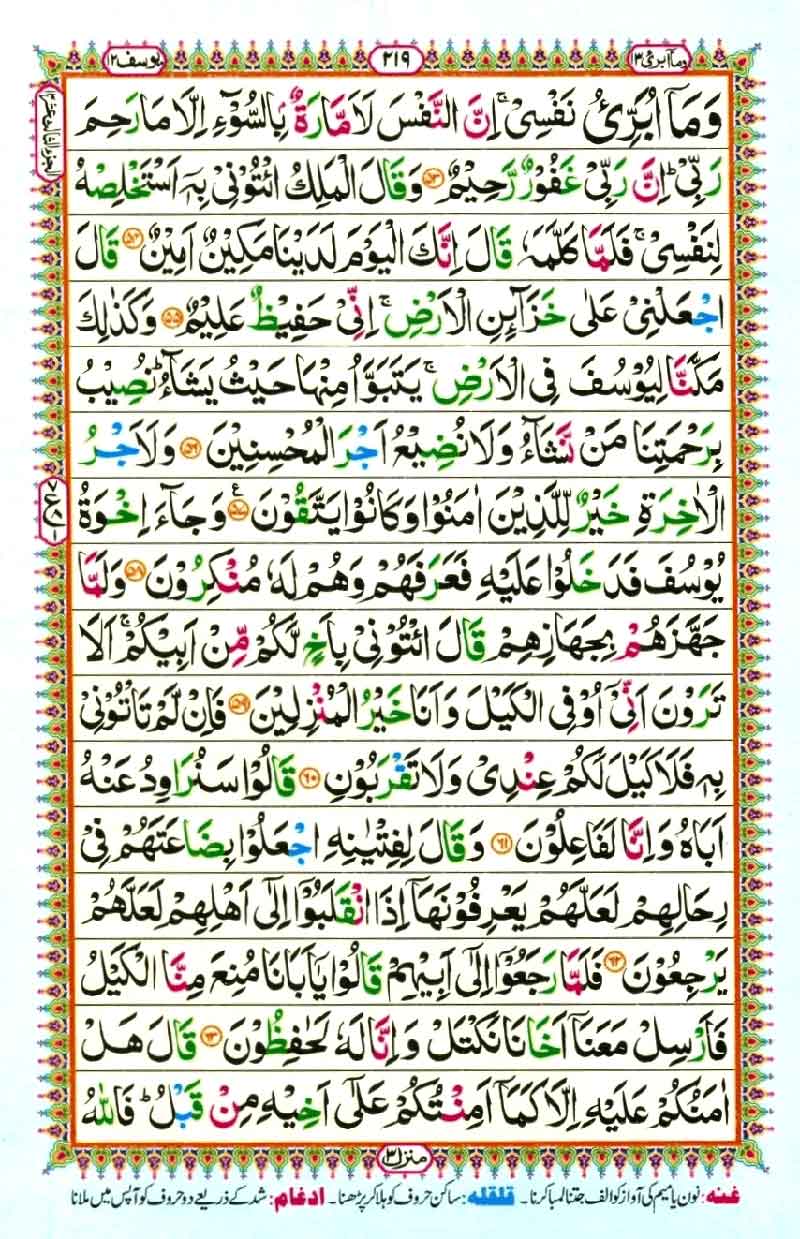 وماابرئ ١٣
٢١٩
يوسف ١٢
وَمَآ اُبَرِّئُ نَفْسِیْ ۚ اِنَّ النَّفْسَ لَاَمَّارَةٌۢ بِالسُّوْٓءِ اِلَّا مَا رَحِمَ
رَبِّیْ ؕ اِنَّ رَبِّیْ غَفُوْرٌ رَّحِیْمٌ ﴿۵۳﴾ وَقَالَ الْمَلِكُ ائْتُوْنِیْ بِهٖۤ اَسْتَخْلِصْهُ
لِنَفْسِیْ ۚ فَلَمَّا كَلَّمَهٗ قَالَ اِنَّكَ الْیَوْمَ لَدَیْنَا مَكِیْنٌ اَمِیْنٌ ﴿۵۴﴾ قَالَ
اجْعَلْنِیْ عَلٰی خَزَآئِنِ الْاَرْضِ ۚ اِنِّیْ حَفِیْظٌ عَلِیْمٌ ﴿۵۵﴾ وَكَذٰلِكَ
مَكَّنَّا لِیُوْسُفَ فِی الْاَرْضِ ۚ یَتَبَوَّاُ مِنْهَا حَیْثُ یَشَآءُ ؕ نُصِیْبُ
بِرَحْمَتِنَا مَنْ نَّشَآءُ وَلَا نُضِیْعُ اَجْرَ الْمُحْسِنِیْنَ ﴿۵۶﴾ وَلَاَجْرُ
الْاٰخِرَةِ خَیْرٌ لِّلَّذِیْنَ اٰمَنُوْا وَكَانُوْا یَتَّقُوْنَ ﴿۵۷﴾ ع وَجَآءَ اِخْوَةُ
یُوْسُفَ فَدَخَلُوْا عَلَیْهِ فَعَرَفَهُمْ وَهُمْ لَهٗ مُنْكِرُوْنَ ﴿۵۸﴾ وَلَمَّا
جَهَّزَهُمْ بِجَهَازِهِمْ قَالَ ائْتُوْنِیْ بِاَخٍ لَّكُمْ مِّنْ اَبِیْكُمْ ۚ اَلَا
تَرَوْنَ اَنِّیْۤ اُوْفِی الْكَیْلَ وَاَنَا خَیْرُ الْمُنْزِلِیْنَ ﴿۵۹﴾ فَاِنْ لَّمْ تَاْتُوْنِیْ
بِهٖ فَلَا كَیْلَ لَكُمْ عِنْدِیْ وَلَا تَقْرَبُوْنِ ﴿۶۰﴾ قَالُوْا سَنُرَاوِدُ عَنْهُ
اَبَاهُ وَاِنَّا لَفَاعِلُوْنَ ﴿۶۱﴾ وَقَالَ لِفِتْیٰنِهِ اجْعَلُوْا بِضَاعَتَهُمْ فِیْ
رِحَالِهِمْ لَعَلَّهُمْ یَعْرِفُوْنَهَاۤ اِذَا انْقَلَبُوْۤا اِلٰۤی اَهْلِهِمْ لَعَلَّهُمْ
یَرْجِعُوْنَ ﴿۶۲﴾ فَلَمَّا رَجَعُوْۤا اِلٰۤی اَبِیْهِمْ قَالُوْا یٰۤاَبَانَا مُنِعَ مِنَّا الْكَیْلُ
فَاَرْسِلْ مَعَنَاۤ اَخَانَا نَكْتَلْ وَاِنَّا لَهٗ لَحٰفِظُوْنَ ﴿۶۳﴾ قَالَ هَلْ
اٰمَنُكُمْ عَلَیْهِ اِلَّا كَمَاۤ اَمِنْتُكُمْ عَلٰۤی اَخِیْهِ مِنْ قَبْلُ ؕ فَاللّٰهُ
منزل ۳
غنه: نون یا میم کی آواز کو الف جتنا لمبا کرنا۔ قلقله: ساکن حروف کو ہلا کر پڑھنا۔ ادغام: شد کے ذریعے دو حروف کو آپس میں ملانا